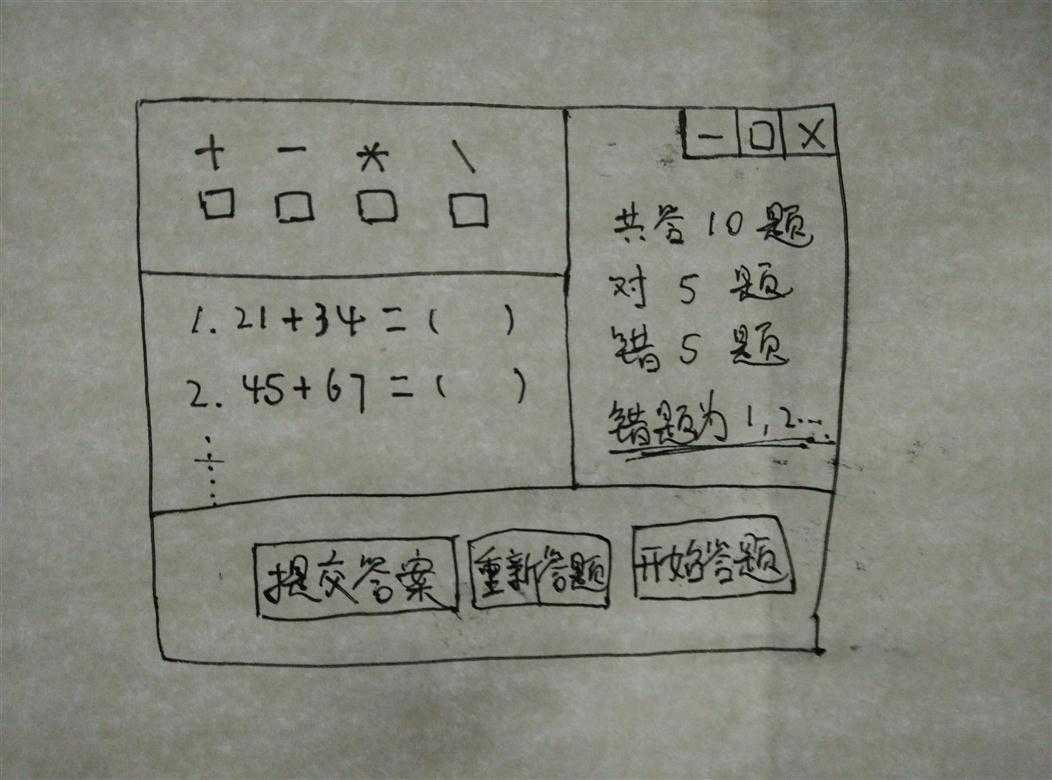 + - * \
- □ ×
共答 10 题
对 5 题
错 5 题
错题为 1, 2...
1. 21+34=( )
2. 45+67=( )
提交答案 重新答题 开始答题